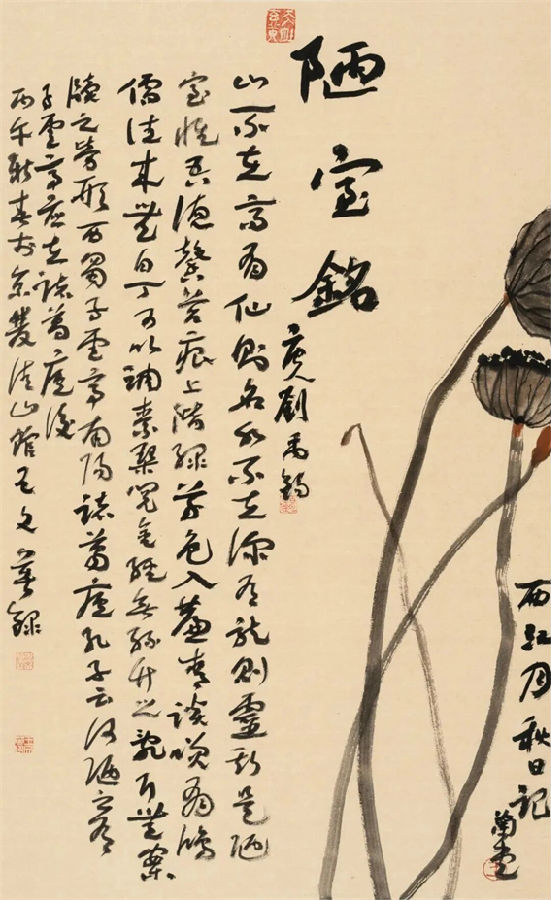 陋室銘
唐劉禹錫
山不在高有仙則名水不在深有龍則靈斯是陋
室惟吾德馨苔痕上階綠草色入簾青談笑有鴻
儒往來無白丁可以調素琴閱金經無絲竹之亂耳無案
牘之勞形西蜀子雲亭南陽諸葛廬孔子云何陋之有
子雲亭應在諸葛廬後
丙午新春於京 山館王文 錄
月秋日記